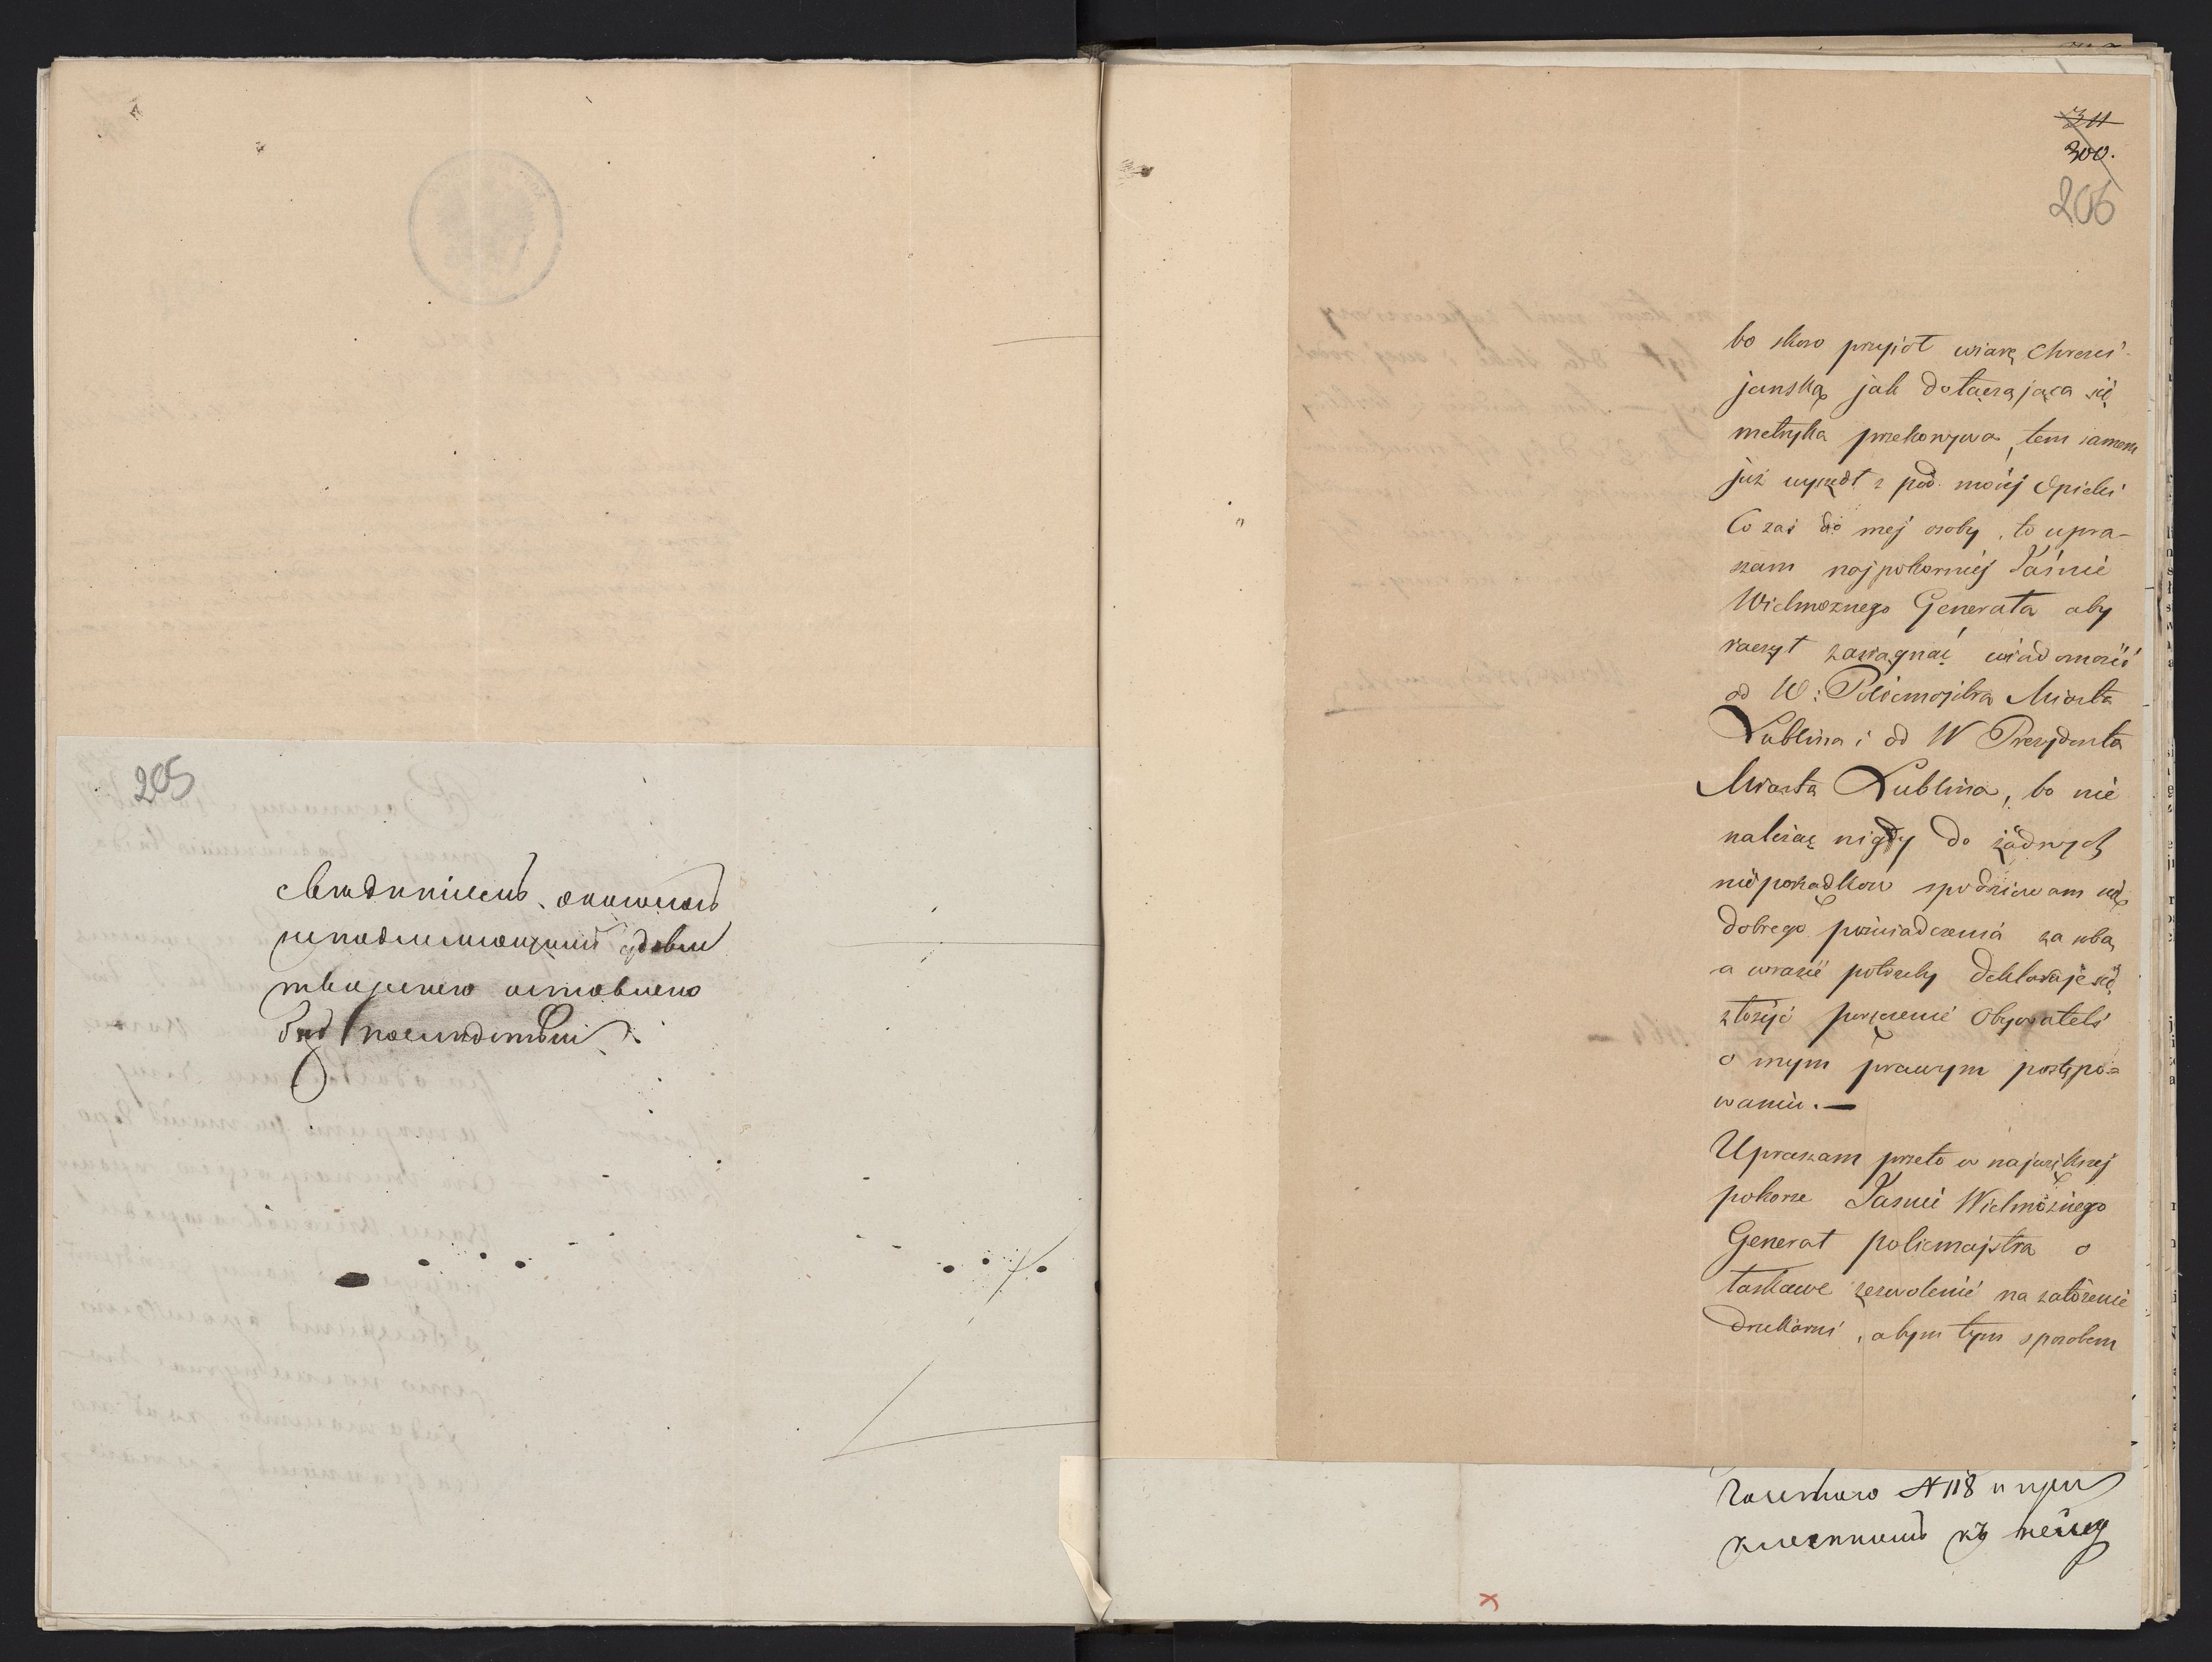 205
неподлежащимъ удовле
оставлено
безъ последствий.
311
300.
206
bo skoro przyiół wiarę Chrześci-
jańską jak dołączająca się
metryka przekonywa, tem samem
już wyszedł z pod moiéj Opieki
Co zaś do mej osoby, to upra-
szam najpokorniéj Jaśnie
Wielmożnego Generała aby
raczył zasiągnąć wiadomość
od W: Policmajstra Miasta
Lublina i od W Prezydenta
Miasta Lublina, bo nie
należąc nigdy do żadnych
nieporządkow spodziewam się
dobrego poświadczenia za sobą
a w razie potrzeby deklaruje się
złożyć poręczenie Obywateli
o mym prawym postępo-
waniu. —
Upraszam przeto w największej
pokorze Jaśnie Wielmożnego
Generał policmajstra o
łaskawe zezwolenie na założenie
Drukarni, abym tym sposobem
N 118 и при
къ